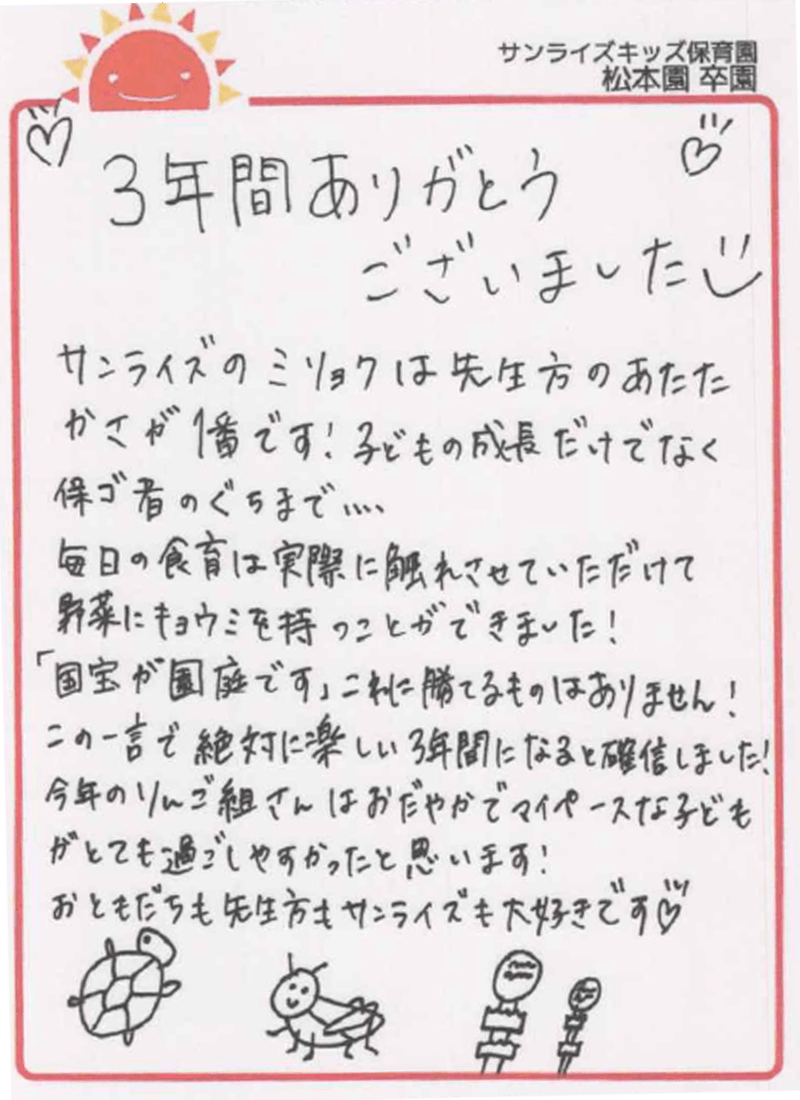 サンライズキッズ保育園
松本園 卒園
3年間ありがとう
ございました
サンライズのミリョクは先生方のあたた
かさが1番です!子どもの成長だけでなく
保ゴ者のぐちまで....
毎日の食育は実際に触れさせていただけて
野菜にキョウミを持つことができました!
「国宝が園庭です」これに勝てるものはありません!
この一言で絶対に楽しい3年間になると確信しました!
今年のりんご組さんはおだやかでマイペースな子ども
がとても過ごしやすかったと思います!
おともだちも先生方もサンライズも大好きです♡